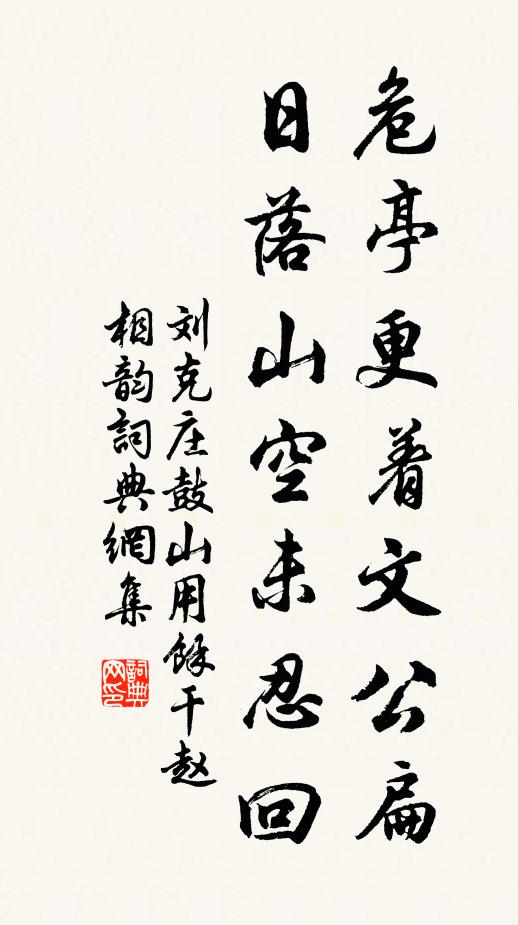 危亭更着文公扁
日落山空未忍回
刘克庄鼓山用餘干赵
相韵詞典網集
詞典网印